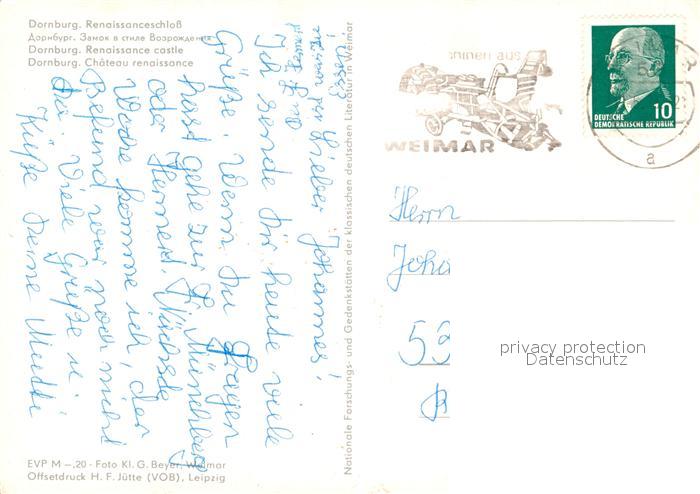 Dornburg. Renaissanceschloß
Дорнбург. Замок в стиле Возрождения
Dornburg. Renaissance castle
Dornburg. Château renaissance
Lieber Johannes!
Ich sende Dir heute viele
Grüße. Wenn Du Fragen
hast gehe zur Fr. Münchberg
oder Herrn Nächste
Woche komme ich, der
Befund war noch nicht
da. Viele Grüße u.
Küße Deine Mutti
EVP M –,20 · Foto Kl. G. Beyer, Weimar
Offsetdruck H. F. Jütte (VOB), Leipzig
Nationale Forschungs- und Gedenkstätten der klassischen deutschen Literatur in Weimar
chinen aus
WEIMAR
10
DEUTSCHE
DEMOKRATISCHE REPUBLIK
a
Herrn
Joha
53
privacy protection
Datenschutz